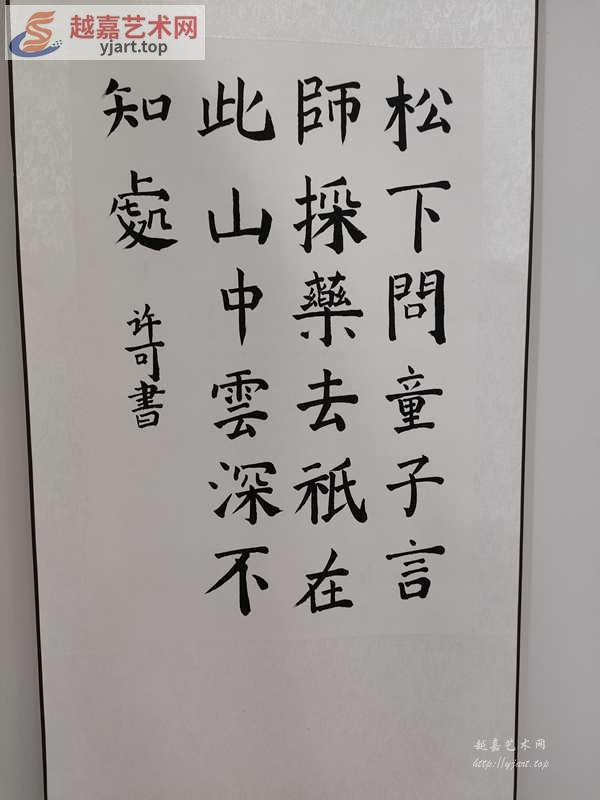 越嘉艺术网
yjart.top
松下問童子言
師採藥去祇在
此山中雲深不
知處
许可書
越嘉艺术网
http://yjart.top